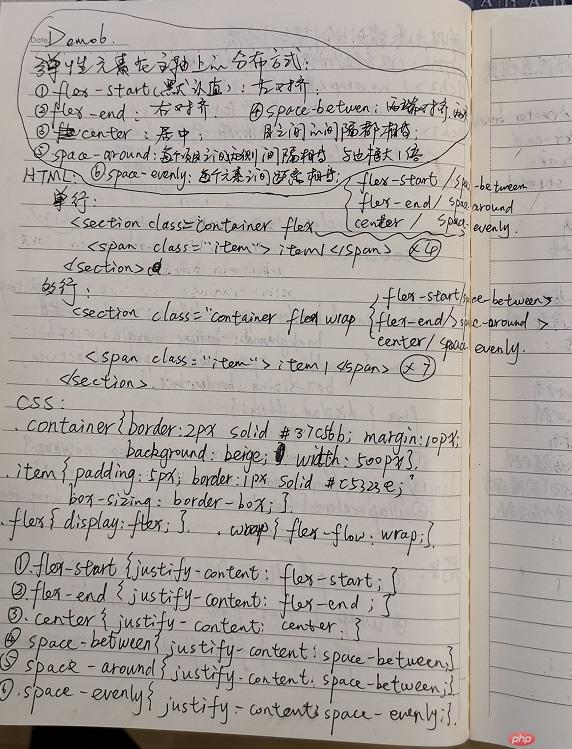 Date
Demo6.
弹性元素在主轴上的分布方式:
① flex-start(默认值): 左对齐.
② flex-end: 右对齐. ④ space-betwen: 两端对齐,
③ center: 居中; 目之间的间隔都相等.
⑤ space-around: 每个项目之间两侧间隔相等
HTML: ⑥ space-evenly: 每个元素之间距离相等;
单行: flex-start / space-between
flex-end / space-around
<section class="container flex center / space-evenly.
<span class="item"> item1 </span> ×6
</section>
多行: flex-start/space-between>
<section class="container flex wrap flex-end/space-around >
center/ space-evenly.
<span class="item"> item1 </span> ×7
</section>
CSS:
.container{border:2px solid #37c56b; margin:10px;
background: beige; width: 500px}.
.item{ padding: 5px; border: 1px solid #c5323e;
box-sizing: border-box; }
.flex{ display: flex; } .wrap{ flex-flow: wrap;}
①.flex-start {justify-content: flex-start; }
②.flex-end {justify-content: flex-end ; }
③.center{ justify-content: center. }
④ space-between{ justify-content: space-between;}
⑤ space-around{ justify-content. space-between;}
⑥.space-evenly{ justify-content: space-evenly;}.
php